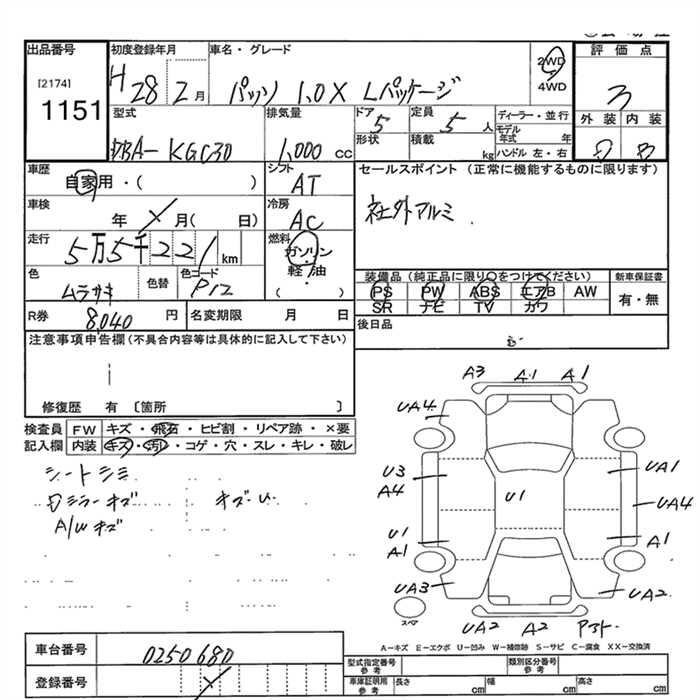 出品番号
[2174]
1151
初度登録年月
H 28 2月
車名・グレード
パッソ 1.0X Lパッケージ
2WD
4WD
評価点
3
外装 内装
型式
DBA- KGC30
排気量
1,000 cc
ドア 5
形状
定員 5人
積載 kg
ディーラー・並行
モデル年式 年
ハンドル 左・右
車歴
自家用・( )
シフト
AT
セールスポイント (正常に機能するものに限ります)
社外アルミ
車検
年 月( 日)
冷房
AC
走行
5万5千221km
燃料
ガソリン
軽油
( )
色
ムラサキ
色替
色コード
P12
装備品 (純正品に限り○をつけてください)
PS PW ABS エアB AW
SR ナビ TV カワ
新車保証書
有・無
R券 8,040 円
名変期限 月 日
後日品
注意事項申告欄 (不具合内容等は具体的に記入して下さい)
修復歴 有 〔箇所 〕
検査員
記入欄
FW キズ・飛石・ヒビ割・リペア跡・×要
内装 キズ・汚レ・コゲ・穴・スレ・キレ・破レ
シートシミ
ミラーキズ
キズ・U
A/Wキズ
A3 A1 A1
UA4
U3
A4
U1
U1
A1
UA3
UA1
UA4
A1
UA2
UA2 A2
スペア
A-キズ E-エクボ U-凹み W-補修跡 S-サビ C-腐食 XX-交換済
車台番号
0250680
登録番号
型式指定番号
参考
類別区分番号
参考
車庫証明用
参考
長さ cm
幅 cm
高さ cm